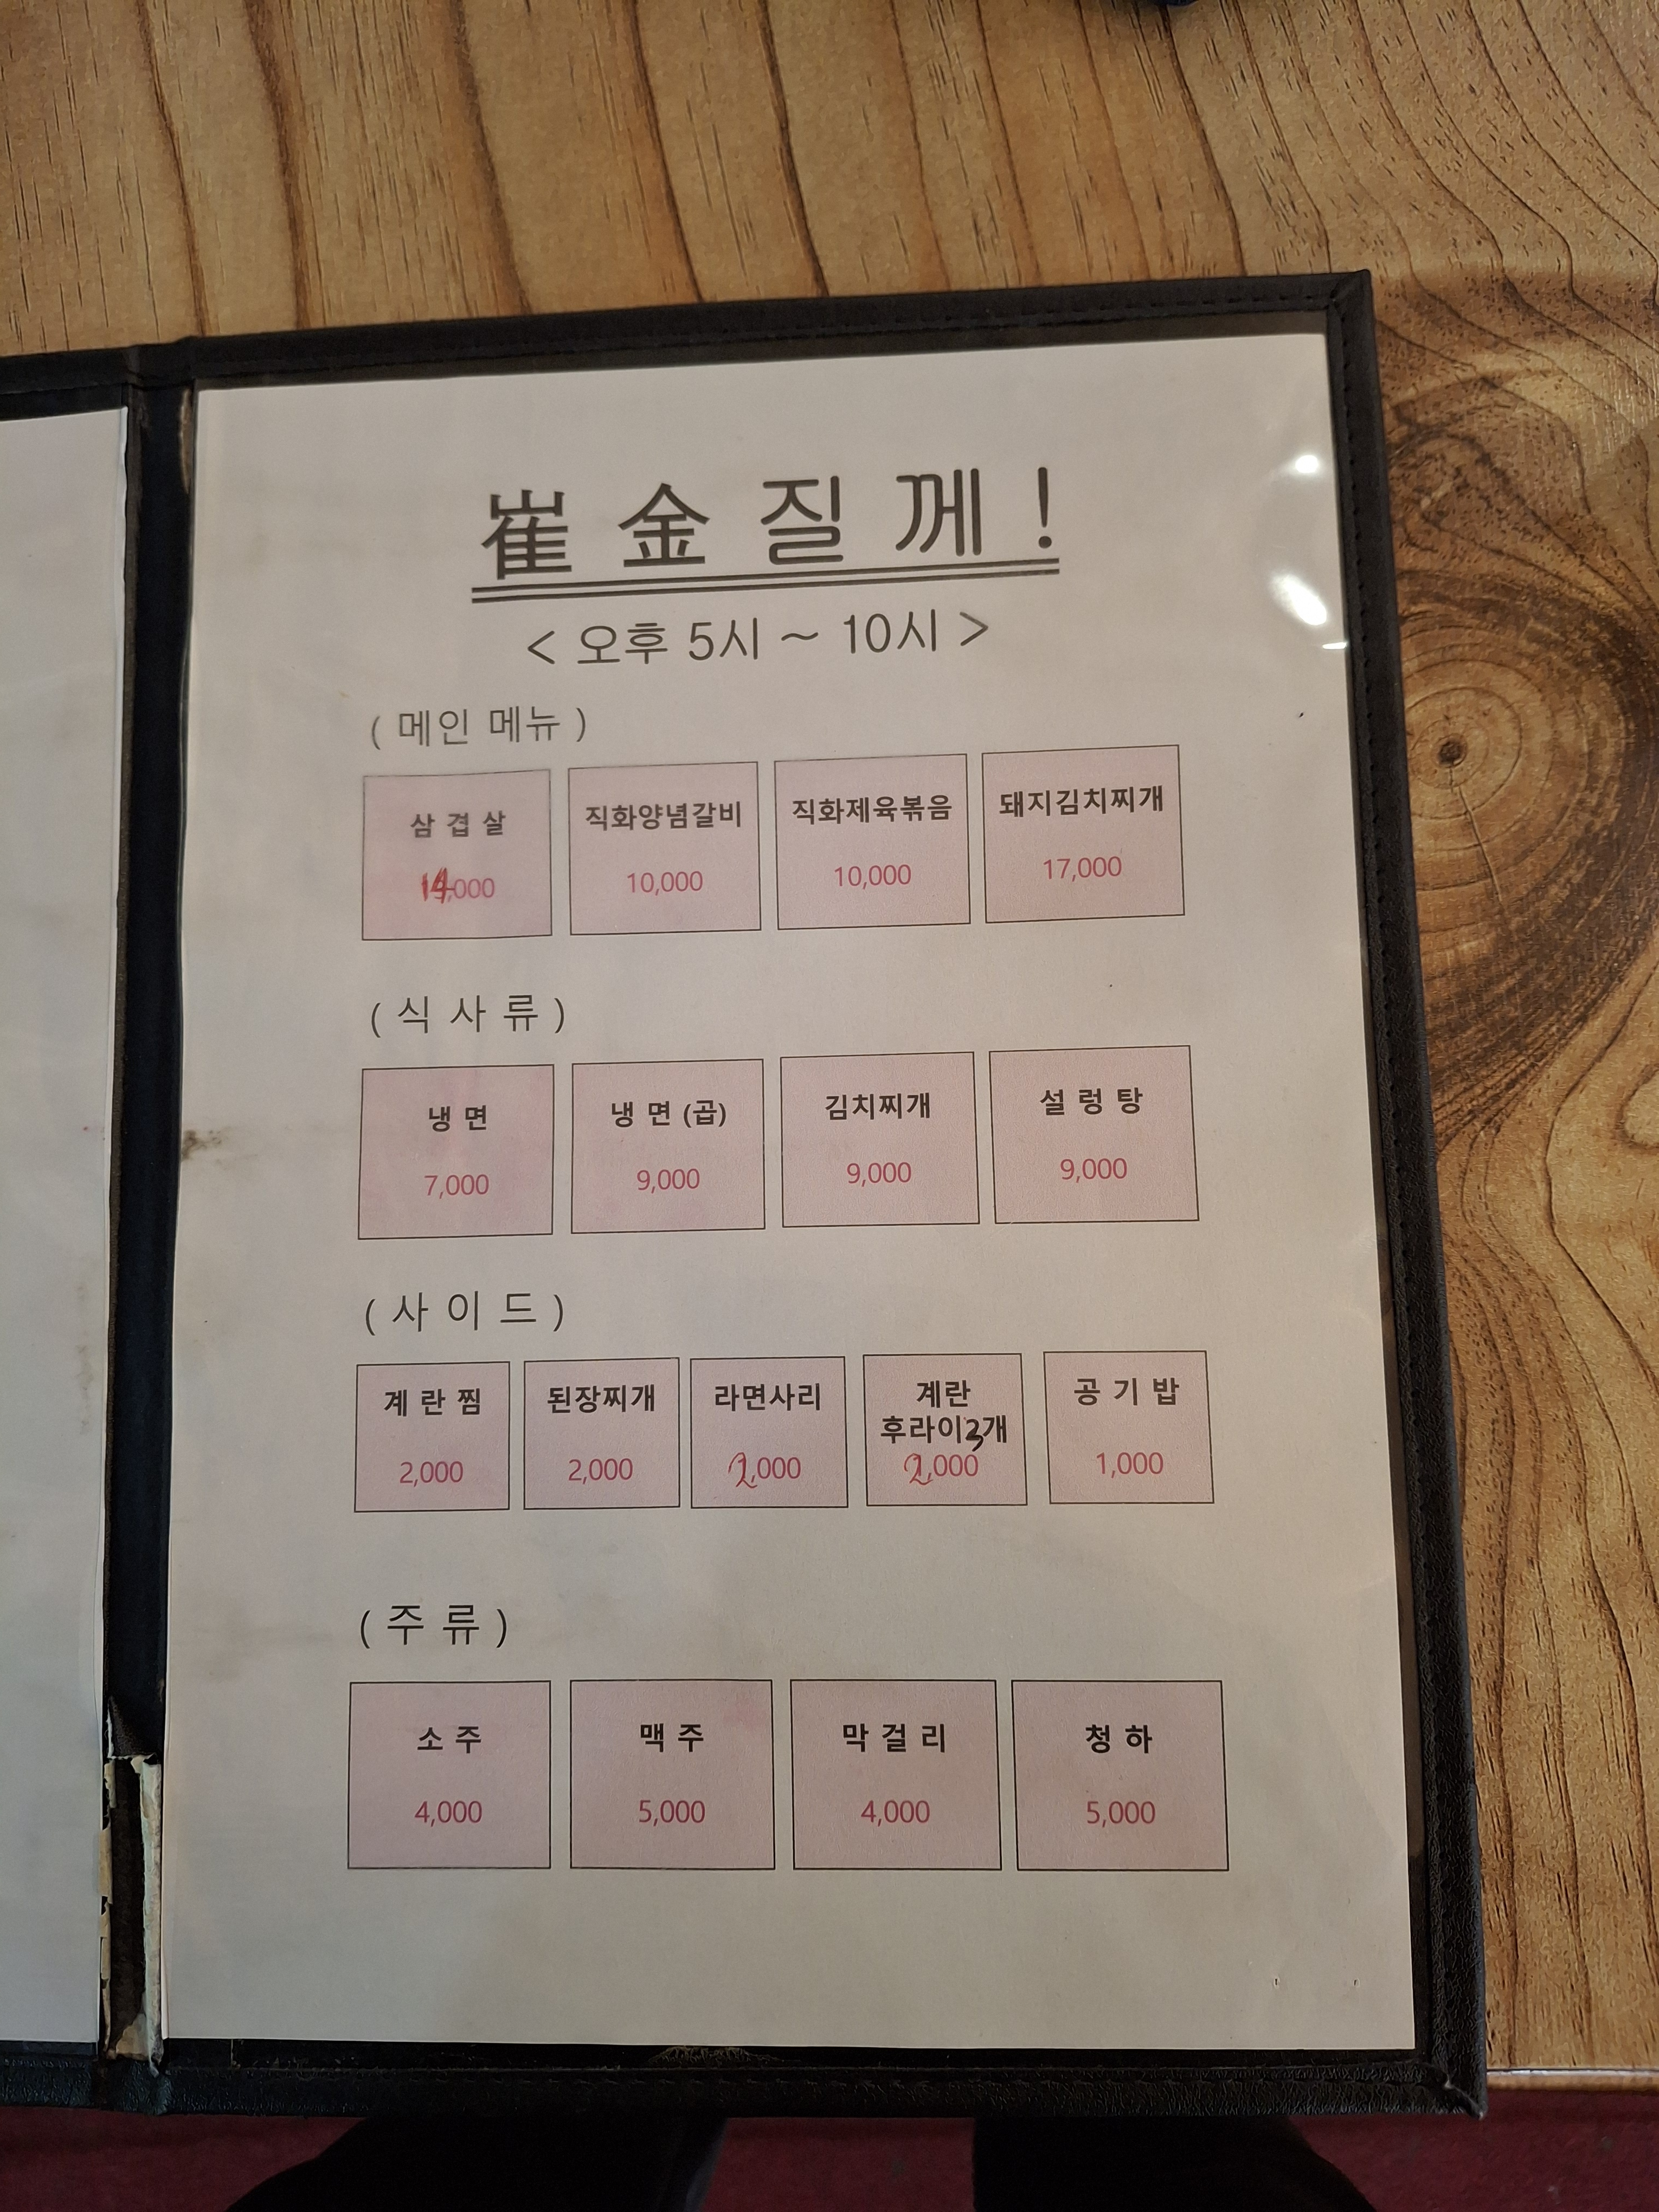 崔金질께!
< 오후 5시 ~ 10시 >
( 메인 메뉴 )
삼겹살 직화양념갈비 직화제육볶음 돼지김치찌개
14,000 10,000 10,000 17,000
( 식사류 )
냉면 냉면(곱) 김치찌개 설렁탕
7,000 9,000 9,000 9,000
( 사이드 )
계란찜 된장찌개 라면사리 계란 공기밥
후라이3개
2,000 2,000 2,000 2,000 1,000
( 주류 )
소주 맥주 막걸리 청하
4,000 5,000 4,000 5,000